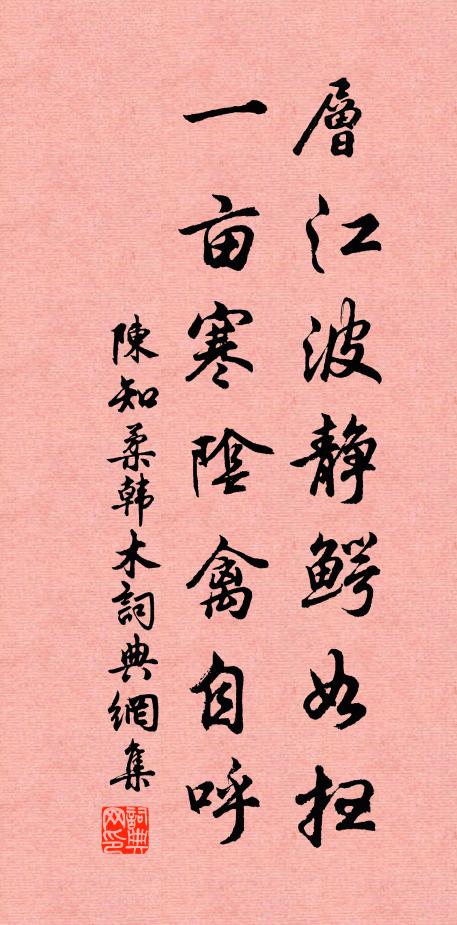 層江波静鳄如扫
一亩寒陰禽自呼
陳知柔韩木詞典網集
詞典网印